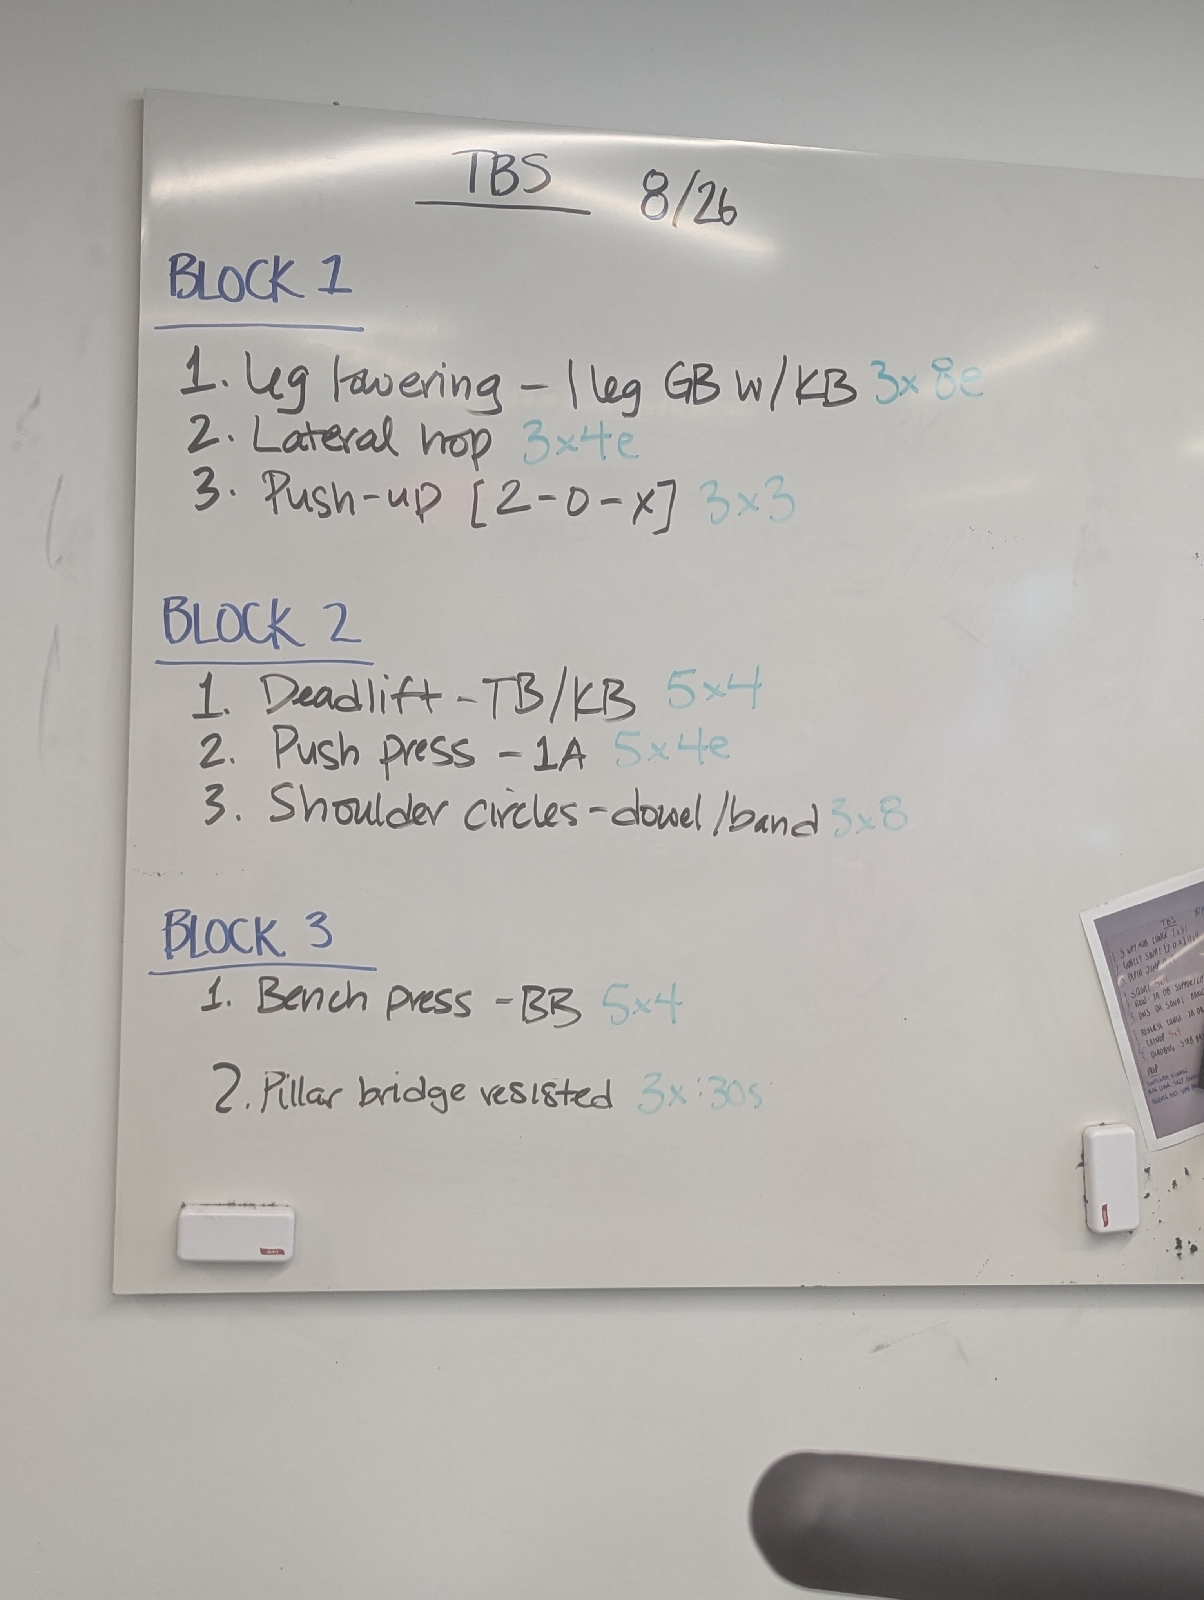 TBS 8/26
BLOCK 1
1. Leg lowering - 1 leg GB w/KB 3x8e
2. Lateral hop 3x4e
3. Push-up [2-0-x] 3x3
BLOCK 2
1. Deadlift - TB/KB 5x4
2. Push press - 1A 5x4e
3. Shoulder circles - dowel/band 3x8
BLOCK 3
1. Bench press - BB 5x4
2. Pillar bridge resisted 3x:30s
TBS